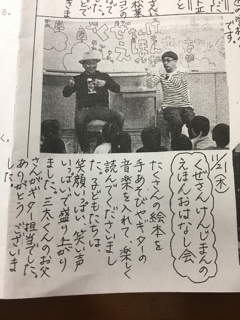 くぜさん
えほん
1/21(木)
くぜさん けんじまんの
えほんおはなし会
たくさんの絵本を
手あそびやギターの
音楽を入れて、楽しく
読んでくださいまし
た。子どもたちは、
笑顔いっぱい、笑い声
いっぱいで盛り上がり
ました。三太くんのお父
さんがギター担当でした。
ありがとうございま
した。